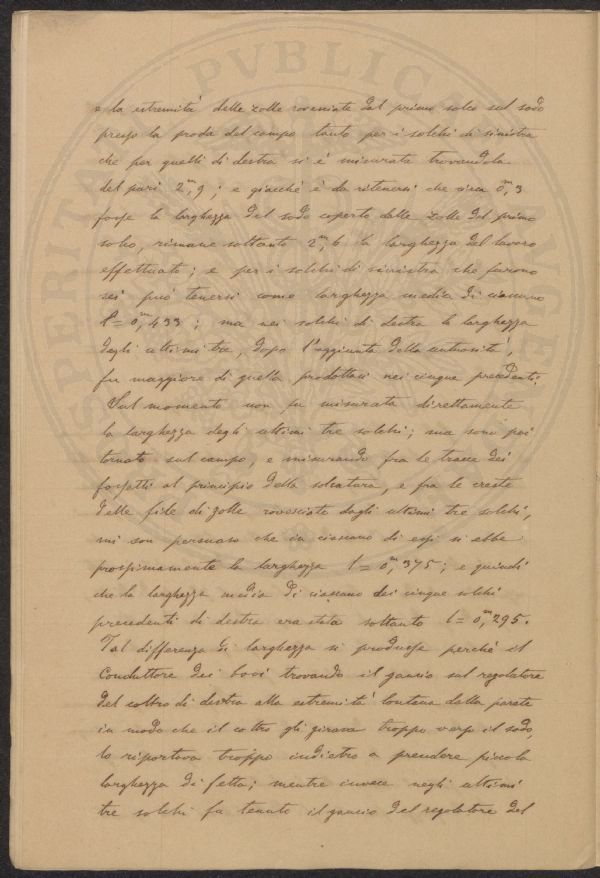 e la estremità delle zolle rovesciate dal primo solco sul sodo
presso la proda del campo tanto per i solchi di sinistra
che per quelli di destra si è misurata trovandola
del pari 2,ᵐ9; e giacchè è da ritenersi che circa 0,ᵐ3
fosse la larghezza del sodo coperto dalle zolle del primo
solco, rimane soltanto 2,ᵐ6 la larghezza del lavoro
effettuato; e per i solchi di sinistra che furono
sei può tenersi come larghezza media di ciascuno
l = 0,ᵐ433; ma nei solchi di destra la larghezza
degli ultimi tre, dopo l'aggiunta della
fu maggiore di quella prodottasi nei cinque precedenti.
Sul momento non fu misurata direttamente
la larghezza degli ultimi tre solchi; ma sono poi
tornato sul campo, e misurando fra le tracce dei
fossetti al principio della solcatura, e fra le creste
delle file di zolle rovesciate dagli ultimi tre solchi,
mi son persuaso che in ciascuno di essi si ebbe
prossimamente la larghezza l = 0,ᵐ375; e quindi
che la larghezza media di ciascuno dei cinque solchi
precedenti di destra era stata soltanto l = 0,ᵐ295.
Tal differenza di larghezza si produsse perchè il
conduttore dei bovi trovando il gancio sul regolatore
del coltro di destra alla estremità lontana dalla parete
in modo che il coltro gli girava troppo verso il sodo,
lo riportava troppo indietro a prendere piccola
larghezza di fetta; mentre invece negli ultimi
tre solchi fu tenuto il gancio del regolatore del
PVBLICA